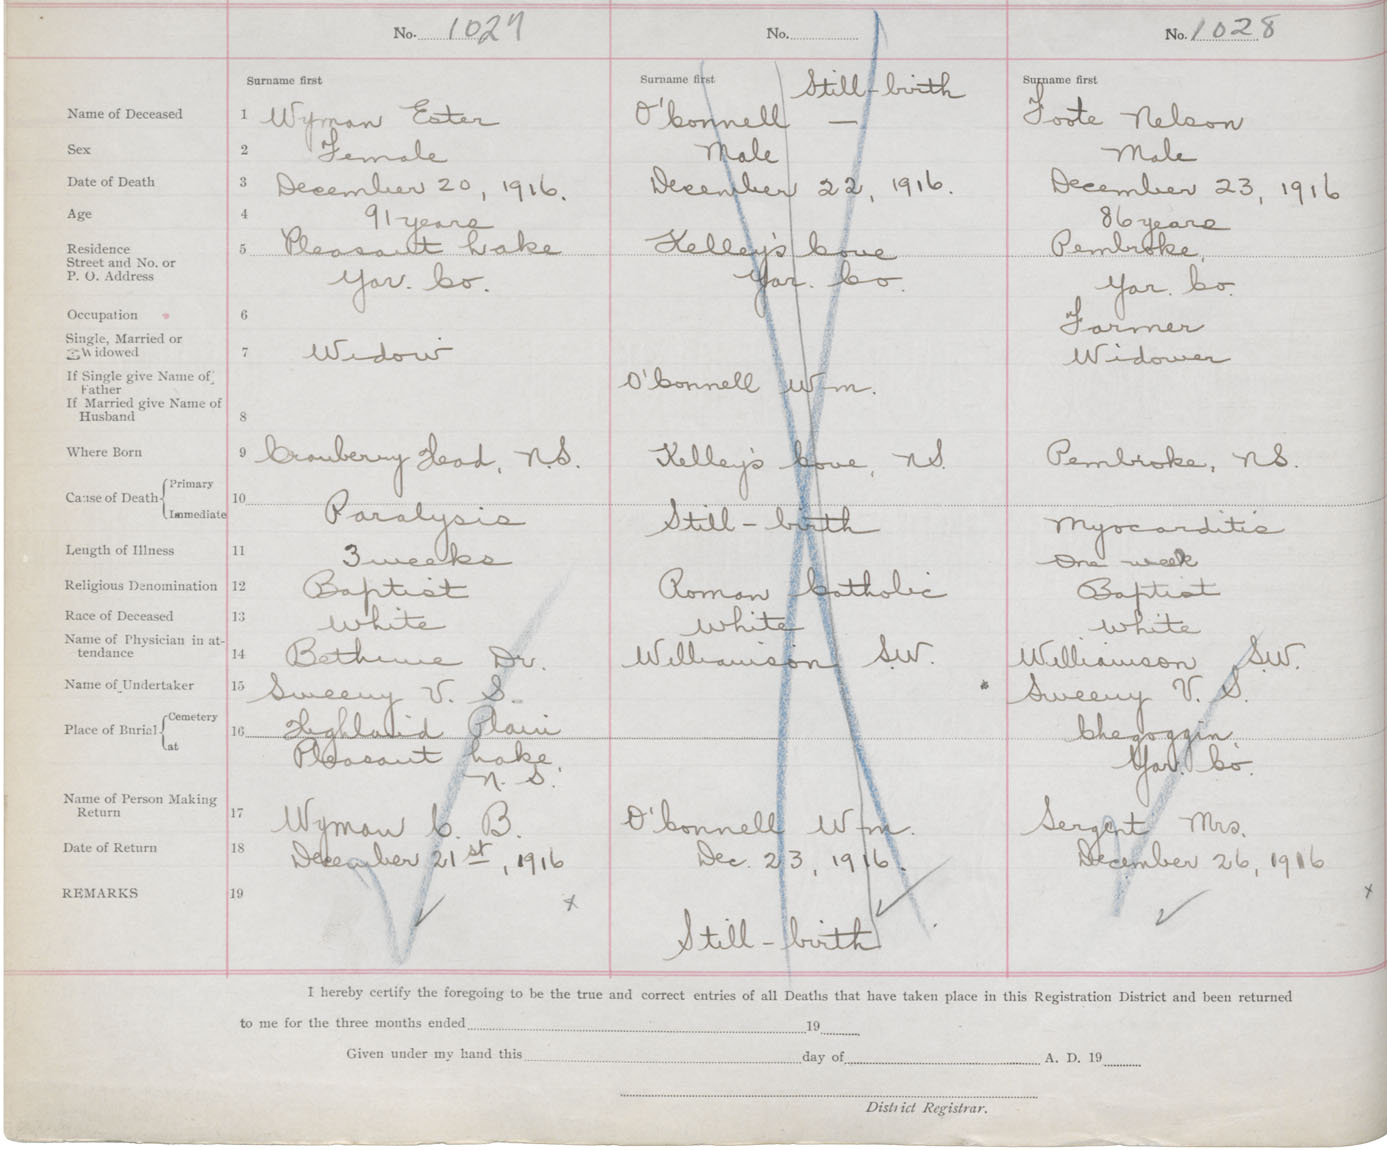 No. 1027 No. No. 1028
Surname first Surname first Still-birth Surname first
Name of Deceased 1 Wyman Ester O'Connell — Foote Nelson
Sex 2 Female Male Male
Date of Death 3 December 20, 1916. December 22, 1916. December 23, 1916
Age 4 91 years 86 years
Residence 5 Pleasant Lake Kelley's Cove Pembroke,
Street and No. or
P. O. Address Yar. Co. Yar. Co. Yar. Co.
Occupation 6 Farmer
Single, Married or
Widowed 7 Widow Widower
If Single give Name of
Father O'Connell Wm.
If Married give Name of
Husband 8
Where Born 9 Cranberry Head, N.S. Kelley's Cove, N.S. Pembroke, N.S.
Cause of Death { Primary
10
Immediate Paralysis Still-birth Myocarditis
Length of Illness 11 3 weeks one week
Religious Denomination 12 Baptist Roman Catholic Baptist
Race of Deceased 13 White White White
Name of Physician in at-
tendance 14 Bethune Dr. Williamson S.W. Williamson S.W.
Name of Undertaker 15 Sweeny V. S. Sweeny V. S.
Place of Burial { Cemetery
16 Highland Plain Chegoggin,
at Pleasant Lake, Yar. Co.
N. S.
Name of Person Making
Return 17 Wyman C. B. O'Connell Wm. Sergent Mrs.
Date of Return 18 December 21st, 1916 Dec. 23, 1916. December 26, 1916
REMARKS 19 x x
Still-birth
I hereby certify the foregoing to be the true and correct entries of all Deaths that have taken place in this Registration District and been returned
to me for the three months ended 19
Given under my hand this day of A. D. 19
District Registrar.